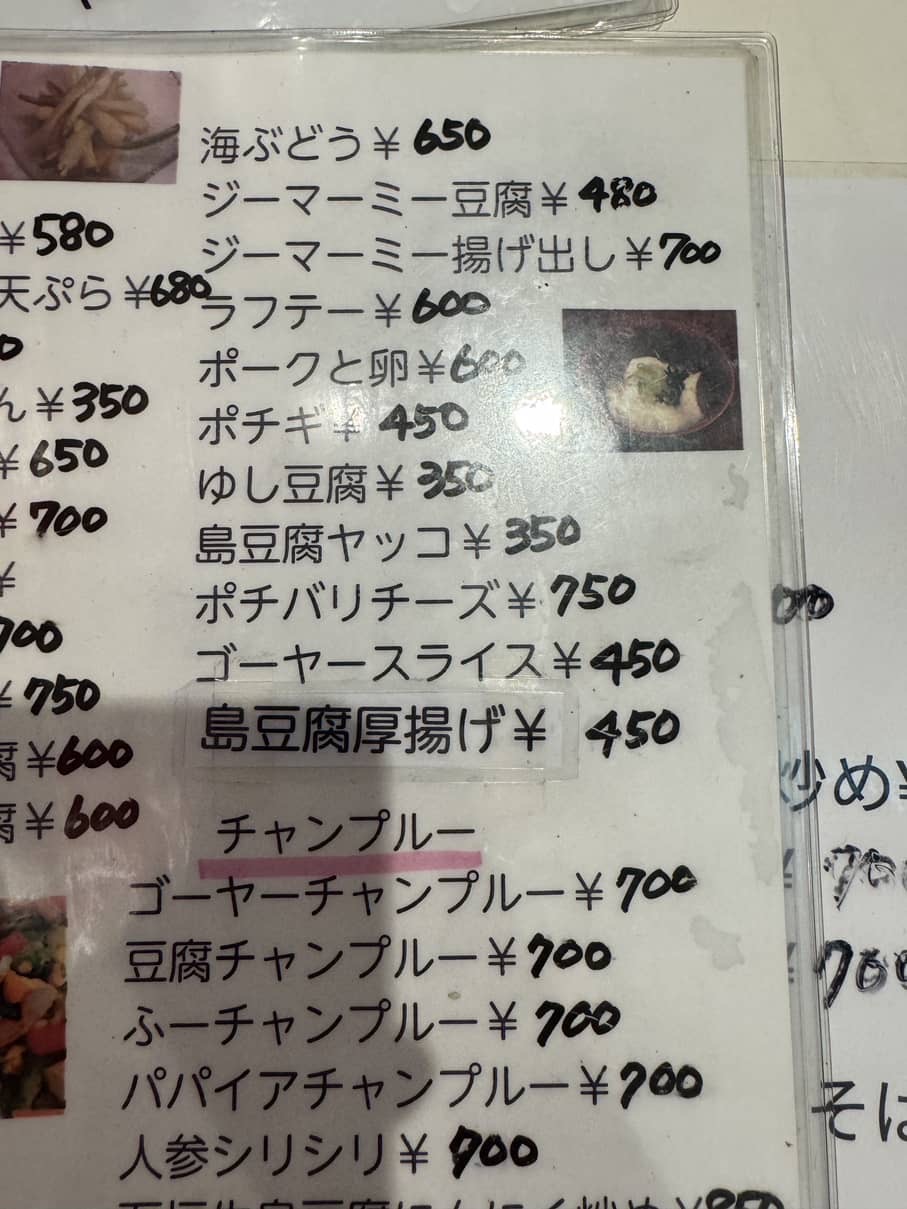 海ぶどう¥650
ジーマーミー豆腐¥480
ジーマーミー揚げ出し¥700
ラフテー¥600
ポークと卵¥600
ポチギ¥450
ゆし豆腐¥350
島豆腐ヤッコ¥350
ポチバリチーズ¥750
ゴーヤースライス¥450
島豆腐厚揚げ¥450
チャンプルー
ゴーヤーチャンプルー¥700
豆腐チャンプルー¥700
ふーチャンプルー¥700
パパイアチャンプルー¥700
人参シリシリ¥700
¥580
天ぷら¥680
ん¥350
¥650
¥700
¥
700
¥750
腐¥600
腐¥600
00
炒め¥
¥700
¥700
そば